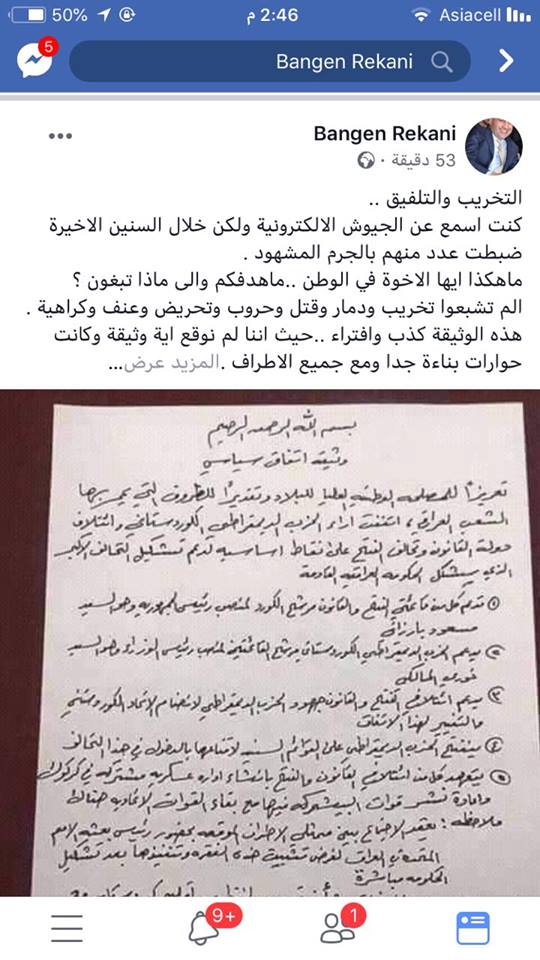 50%
2:46 م
Asiacell
5
Bangen Rekani
Bangen Rekani
53 دقيقة
التخريب والتلفيق ..
كنت اسمع عن الجيوش الالكترونية ولكن خلال السنين الاخيرة
ضبطت عدد منهم بالجرم المشهود .
ماهكذا ايها الاخوة في الوطن ..ماهدفكم والى ماذا تبغون ؟
الم تشبعوا تخريب ودمار وقتل وحروب وتحريض وعنف وكراهية .
هذه الوثيقة كذب وافتراء ..حيث اننا لم نوقع اية وثيقة وكانت
حوارات بناءة جدا ومع جميع الاطراف .المزيد عرض...
بسم الله الرحمن الرحيم
وثيقة اتفاق سياسي
تعزيزاً للمصلحة الوطنية العليا للبلاد وتقديراً للظروف التي يمر بها
الشعب العراقي، اتفقت اراء الحزب الديمقراطي الكوردستاني وائتلاف
دولة القانون وتحالف الفتح على نقاط اساسية لدعم تشكيل التحالف الاكبر
الذي سيشكل الحكومة العراقية القادمة
١ تدعم كل من قائمتي الفتح والقانون مرشح الكورد لمنصب رئيس الجمهورية وهو السيد
مسعود بارزاني
٢ يدعم الحزب الديمقراطي الكوردستاني مرشح القائمتين لمنصب رئيس الوزراء وهو السيد
نوري المالكي
٣ يدعم ائتلاف الفتح والقانون جهود الحزب الديمقراطي لانضمام الاتحاد الكوردستاني
والتغيير لهذا الاتفاق
٤ سينفتح الحزب الديمقراطي على القوائم السنية لاقناعها بالدخول في هذا التحالف
٥ يتعهد كل من ائتلاف القانون والفتح بانشاء ادارة عسكرية مشتركة في كركوك
واعادة نشر قوات البيشمركة فيها مع بقاء القوات الاتحادية هناك
ملاحظة: يعقد الاجتماع بين ممثلي الاطراف الموقعة بحضور رئيس بعثة الامم
المتحدة في العراق لغرض تثبيت هذه الفقرة وتنفيذها بعد تشكيل
الحكومة مباشرة
9+
1